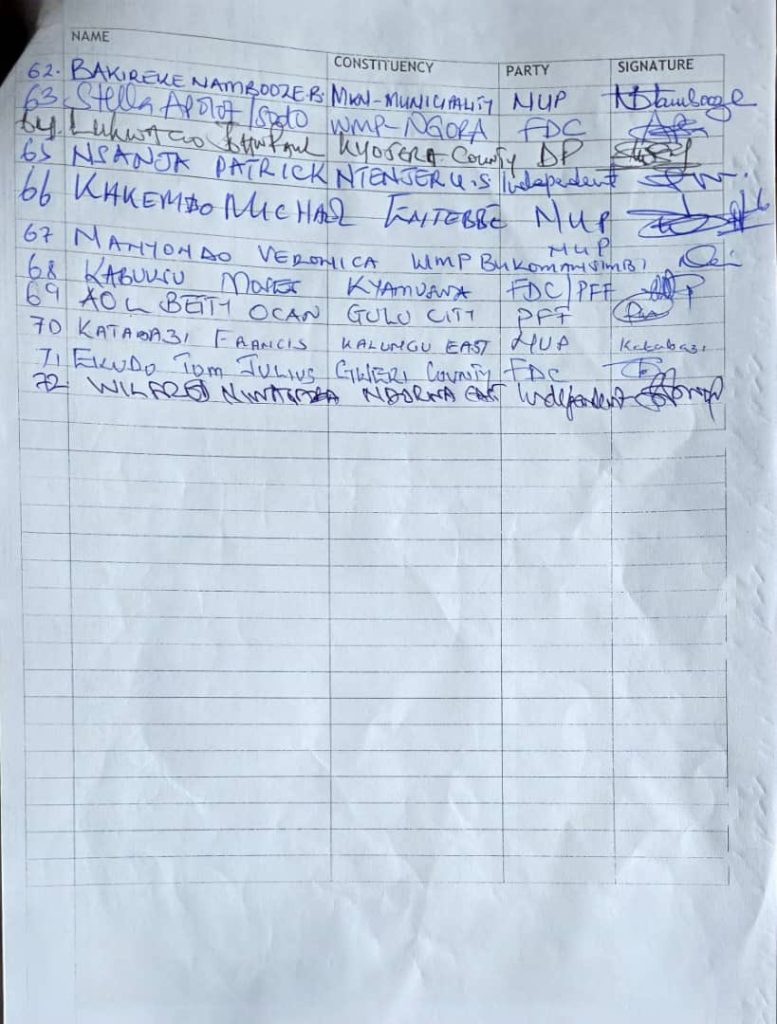 NAME CONSTITUENCY PARTY SIGNATURE
62. BAKIREKE NAMBOOZE B. MKN-MUNICIPALITY NUP NBambooze
63 Stella Apolot Isodo WMP-NGORA FDC
64. Lukwago KYOTERA County DP
65 NSANJA PATRICK NTENJERU.S Independent
66 KAKEMBO MICHAEL ENTEBBE NUP
67 MANYONDO VERONICA WMP BUKOMANSIMBI NUP
68 KABUUSU MOSES KYAMUSWA FDC/PFF
69 AOL BETTY OCAN GULU CITY PFF
70 KATABAZI FRANCIS KALUNGU EAST NUP Katabazi
71 EKUDO TOM JULIUS GWERI COUNTY FDC
72 WILFRED NIWAGABA NDORWA EAST Independent